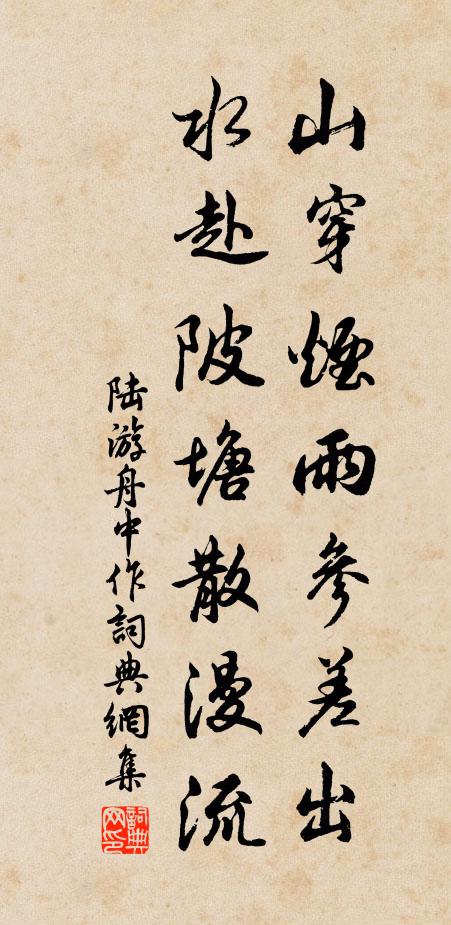 山穿煙雨參差出
水赴陂塘散漫流
陆游舟中作詞典網集
詞典网印